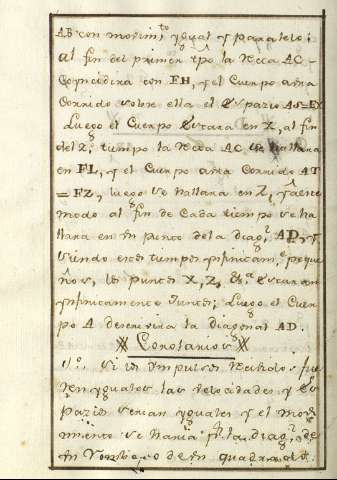 AB con movim.to ygual y paralelo;
al fin del primer tpo la Recta AC
Coyncidira con FH, y el Cuerpo avra
Corrido sobre ella el Espazio AS=EX
Luego el Cuerpo Estara en X, al fin
del 2.º tiempo la Recta AC se hallara
en FL, y el Cuerpo avra Corrido AT
= FZ, luego se hallara en Z, y a este
modo al fin de Cada tiempo se ha
llara en un punto de la diag.l AD, y
siendo estos tiempos ynfinitam.te peque
ños, los puntos X, Z, &.a estaran
ynfinitamente Juntos; Luego el Cuer
po A describira la diagonal AD.
Corolarios
1.º Si los Ympulsos Recibidos fue
ren yguales las velocidades y Es
pazios serian yguales y el movi
miento se haria por la diag.l de
un quadrado